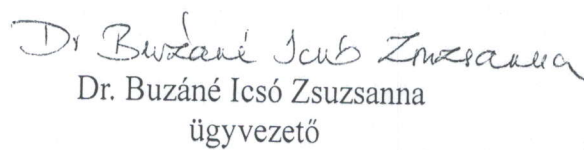 Dr Buzáné Icsó Zsuzsanna
Dr. Buzáné Icsó Zsuzsanna
ügyvezető